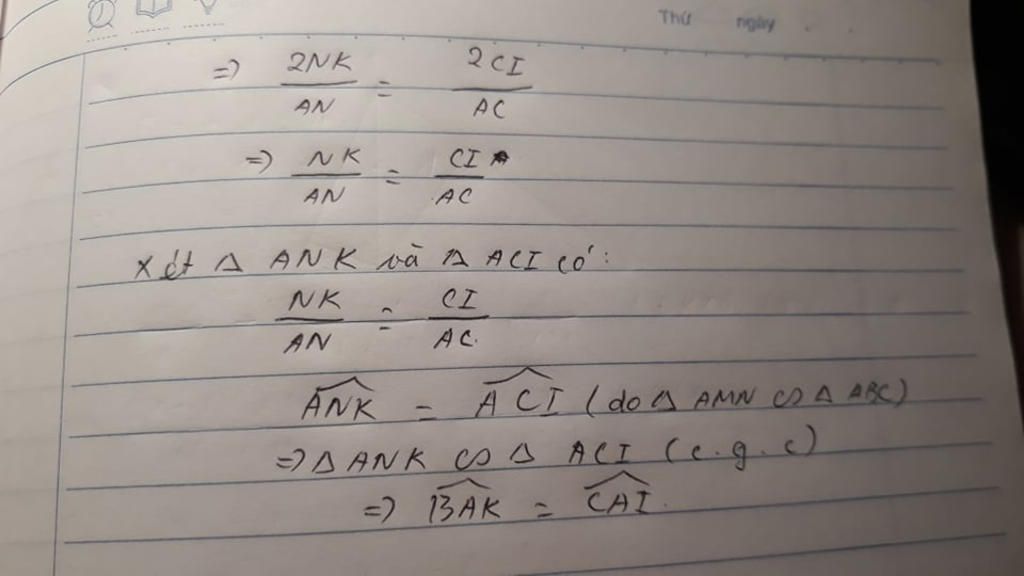 Thứ ngày
=> 2NK/AN = 2CI/AC
=> NK/AN = CI/AC
Xét Δ ANK và Δ ACI có:
NK/AN = CI/AC.
\widehat{ANK} = \widehat{ACI} (do Δ AMN ∽ Δ ABC)
=> Δ ANK ∽ Δ ACI (c.g.c)
=> \widehat{BAK} = \widehat{CAI}.